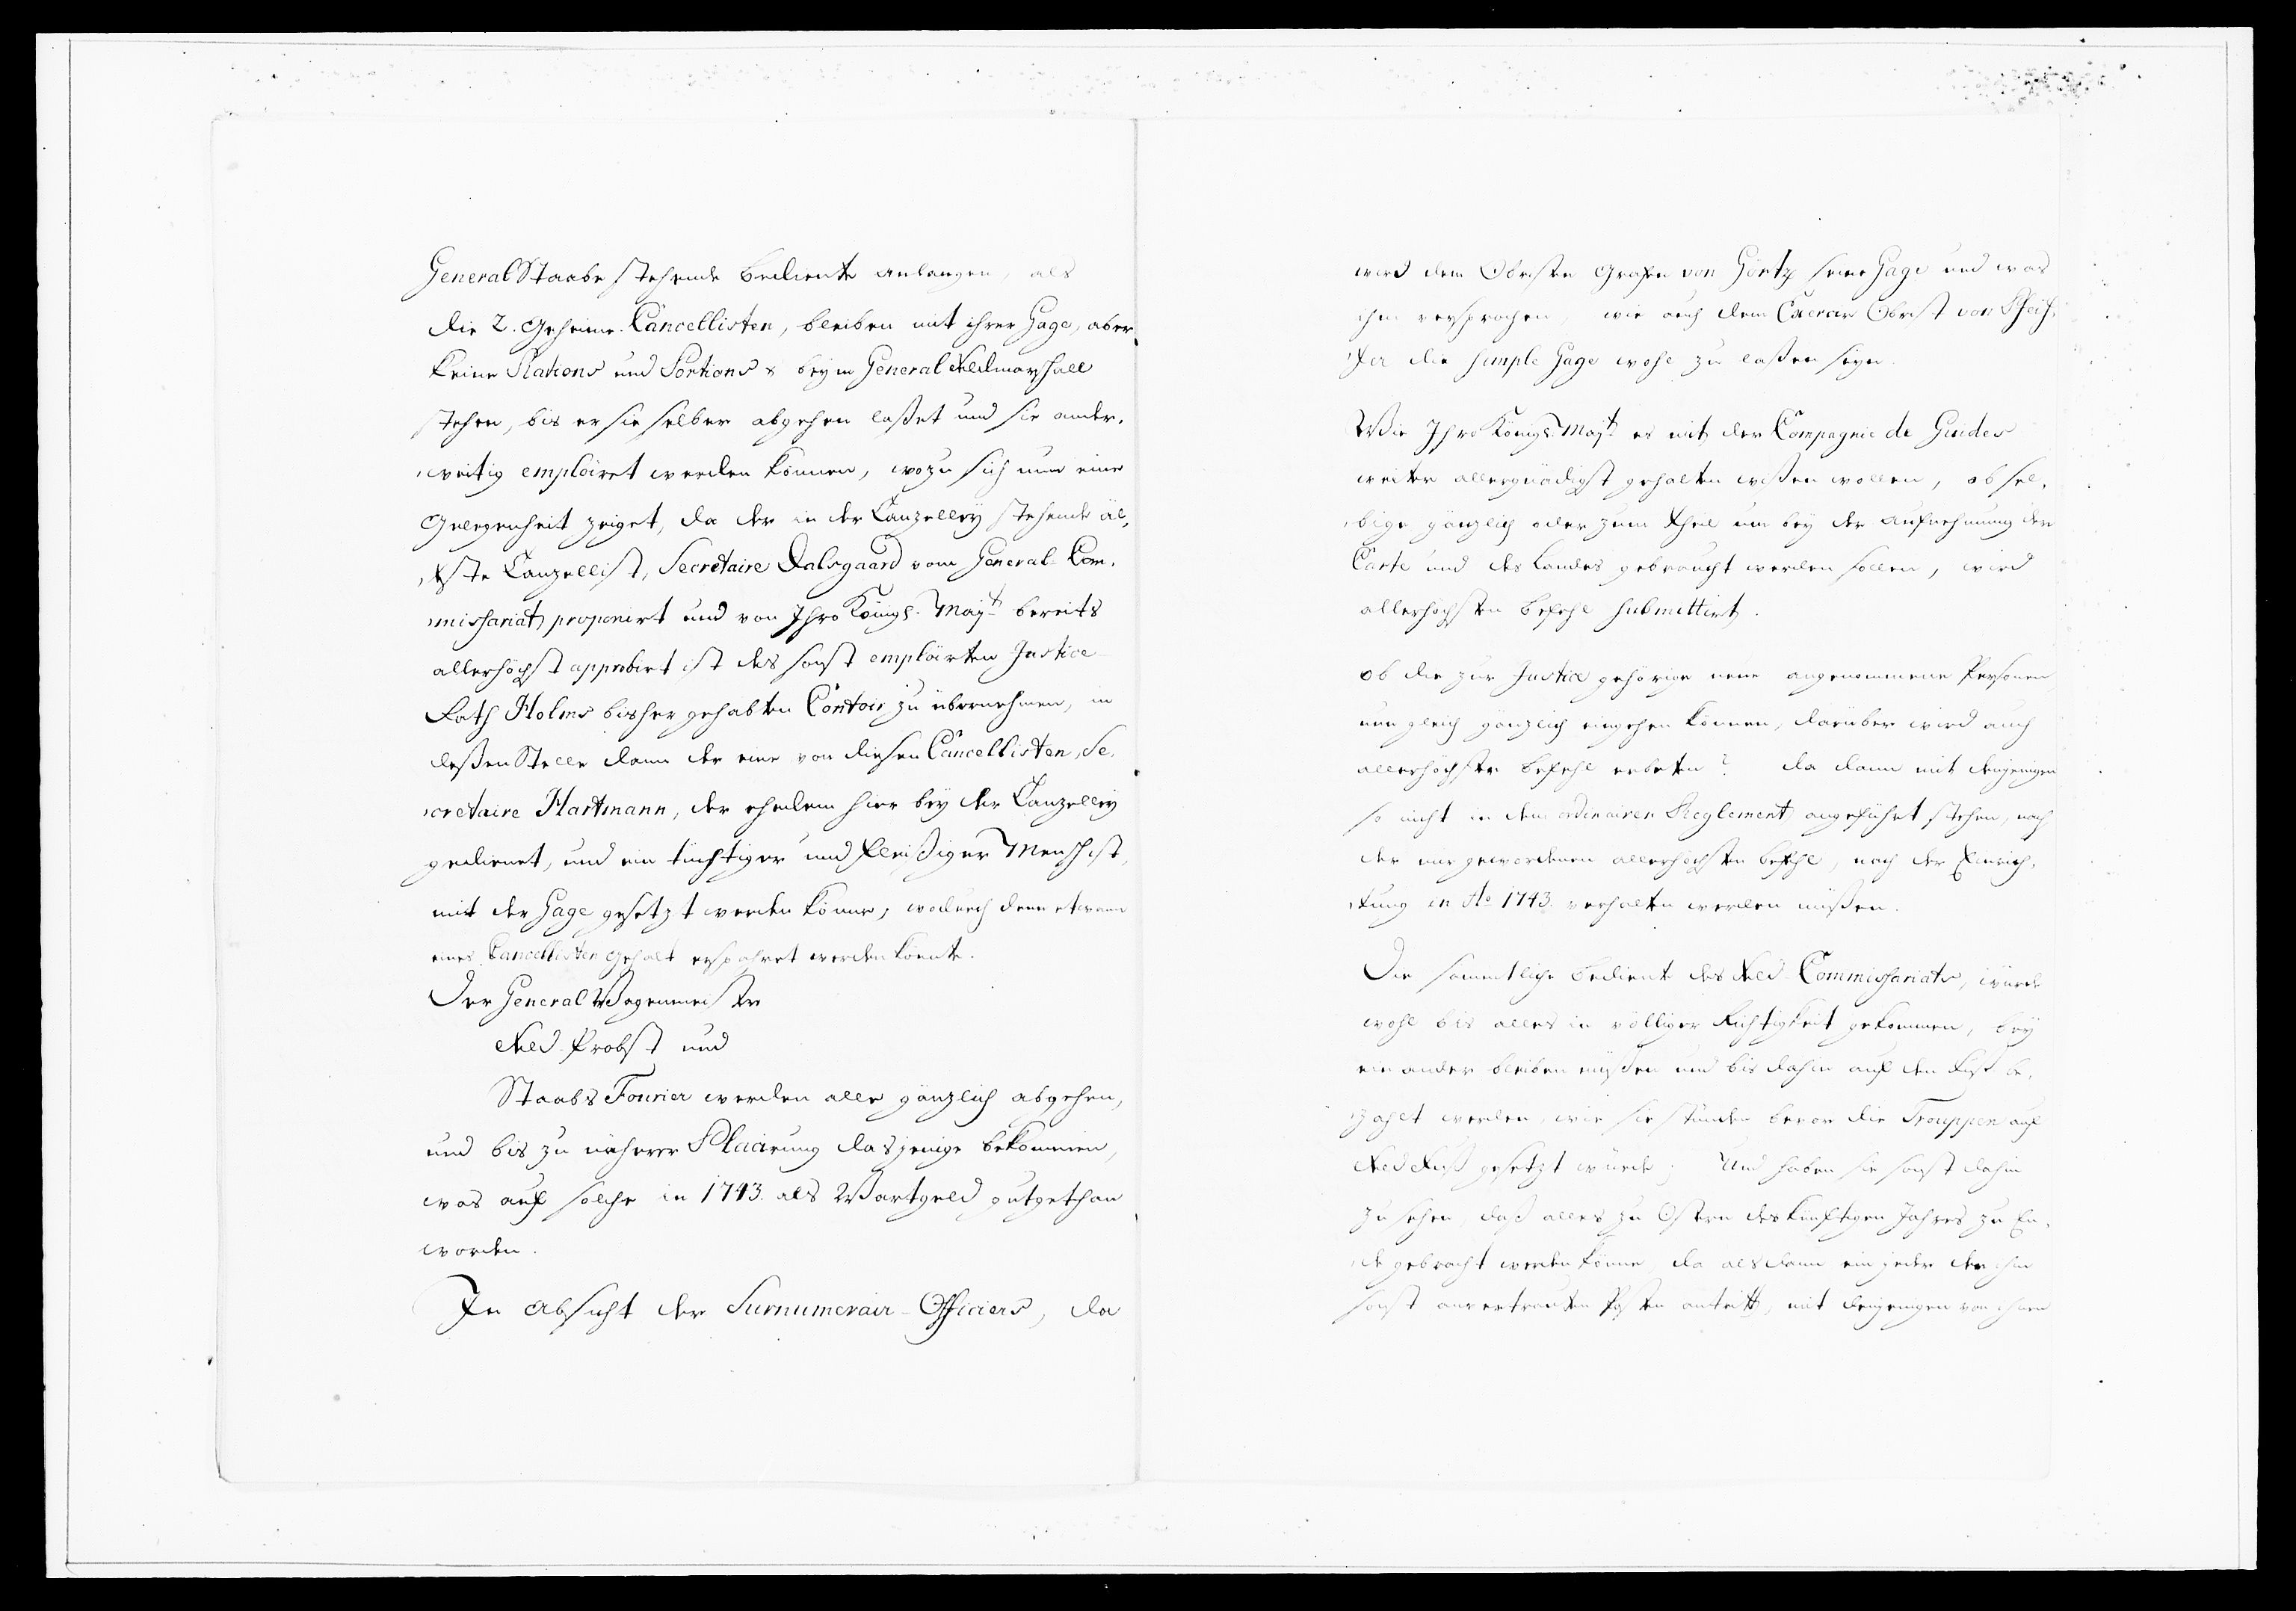 General Staabe stehende bediente anlangen, als
die 2. Geheime Cancellisten, bleiben mit ihrer Gage, aber
keine Rations und Portions & beym General Feldmarschall
stehen, bis er sie selber abgehen laßet und sie ander-
weitig emploiret werden können, wozu sich nun eine
Gelegenheit zeiget, da der in der Canzelley stehende äl-
teste Canzellist, Secretaire Dalsgaard vom General-Com-
missariat proponirt und von Ihro Königl. Mayt. bereits
allerhöchst approbirt ist des sonst emploirten Justice-
Rath Holms bisher gehabten Contoir zu übernehmen, in
deßen Stelle dann der eine von diesen Cancellisten, Se-
cretaire Hartmann, der ehedem hier bey der Canzelley
gedienet, und ein tüchtiger und fleißiger Mensch ist,
mit der Gage gesetzt werden könne, wodurch denn etwann
eines Cancellisten Gehalt ersparet werden könnte.
Der General Wagenmeister
Feld-Probst und
Staabs Fourier werden alle gänzlich abgehen,
und bis zu näherer Placirung dasjenige bekommen,
was auf solche in 1743. als Wartgeld gutgethan
worden.
In Absicht der Surnumerair-Officiers, da
wird dem Obristen Grafen von Görtz seine Gage und was
ihm versprochen, wie auch dem Obrist von Pfeif-
fer die simple Gage wohl zu laßen seyn.
Wie Ihro Königl. Mayt. es mit der Compagnie de Guides
weiter allergnädigst gehalten wißen wollen, ob sel-
bige gänzlich oder zum Theil nun bey der Aufnehmung der
Carte und des Landes gebraucht werden sollen, wird
allerhöchsten befehl submittirt.
ob die zur Justice gehörige neue angenommene Personen
nun gleich gänzlich eingehen können, darüber wird auch
allerhöchster befehl erbeten? da dann mit denjenigen
so nicht in dem ordinairen Reglement angeführt stehen, nach
der mir gewordenen allerhöchsten befehl, nach der Einrich-
tung in Ao 1743. verhalten werden müßen.
Die sämmtliche bediente des Feld-Commissariats, würde
wohl bis alles in völliger Richtigkeit gekommen, bey
einander bleiben müßen und bis dahin auf den Fuß be-
zahlt werden, wie sie stunden bevor die Trouppen auf
Feld Fuß gesetzt würde; Und haben sie sonst dahin
zu sehen, daß alles zu Ostern des künftigen Jahres zu En-
de gebracht werden könne, da alsdann ein jeder den ihm
sonst anvertrauten Posten antritt, mit denjenigen von ihnen